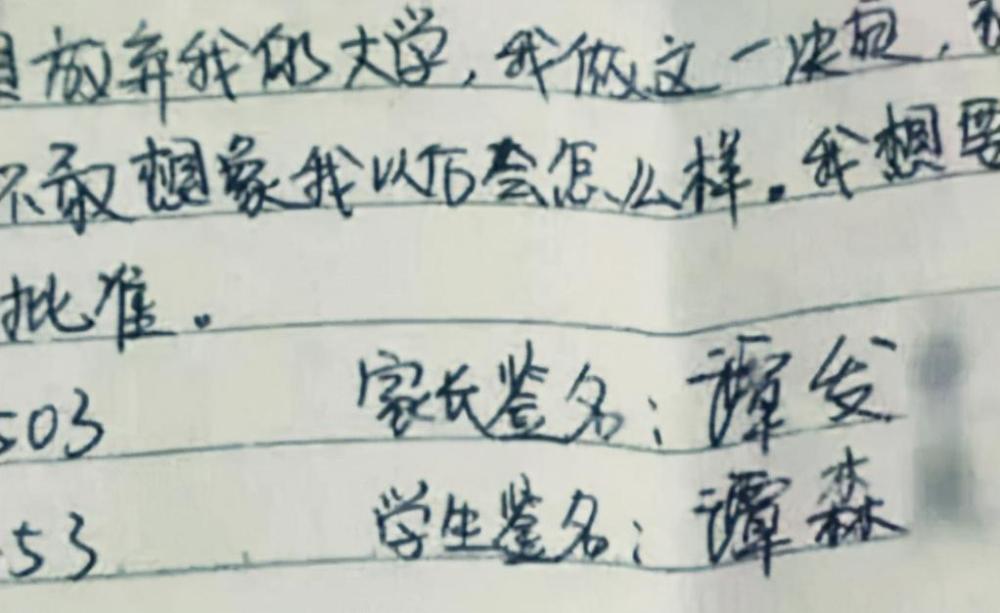 放弃我的大学,我做这一决定,
不敢想象我以后会怎么样。我想要
批准。
503 家长签名:谭发
53 学生签名:谭森